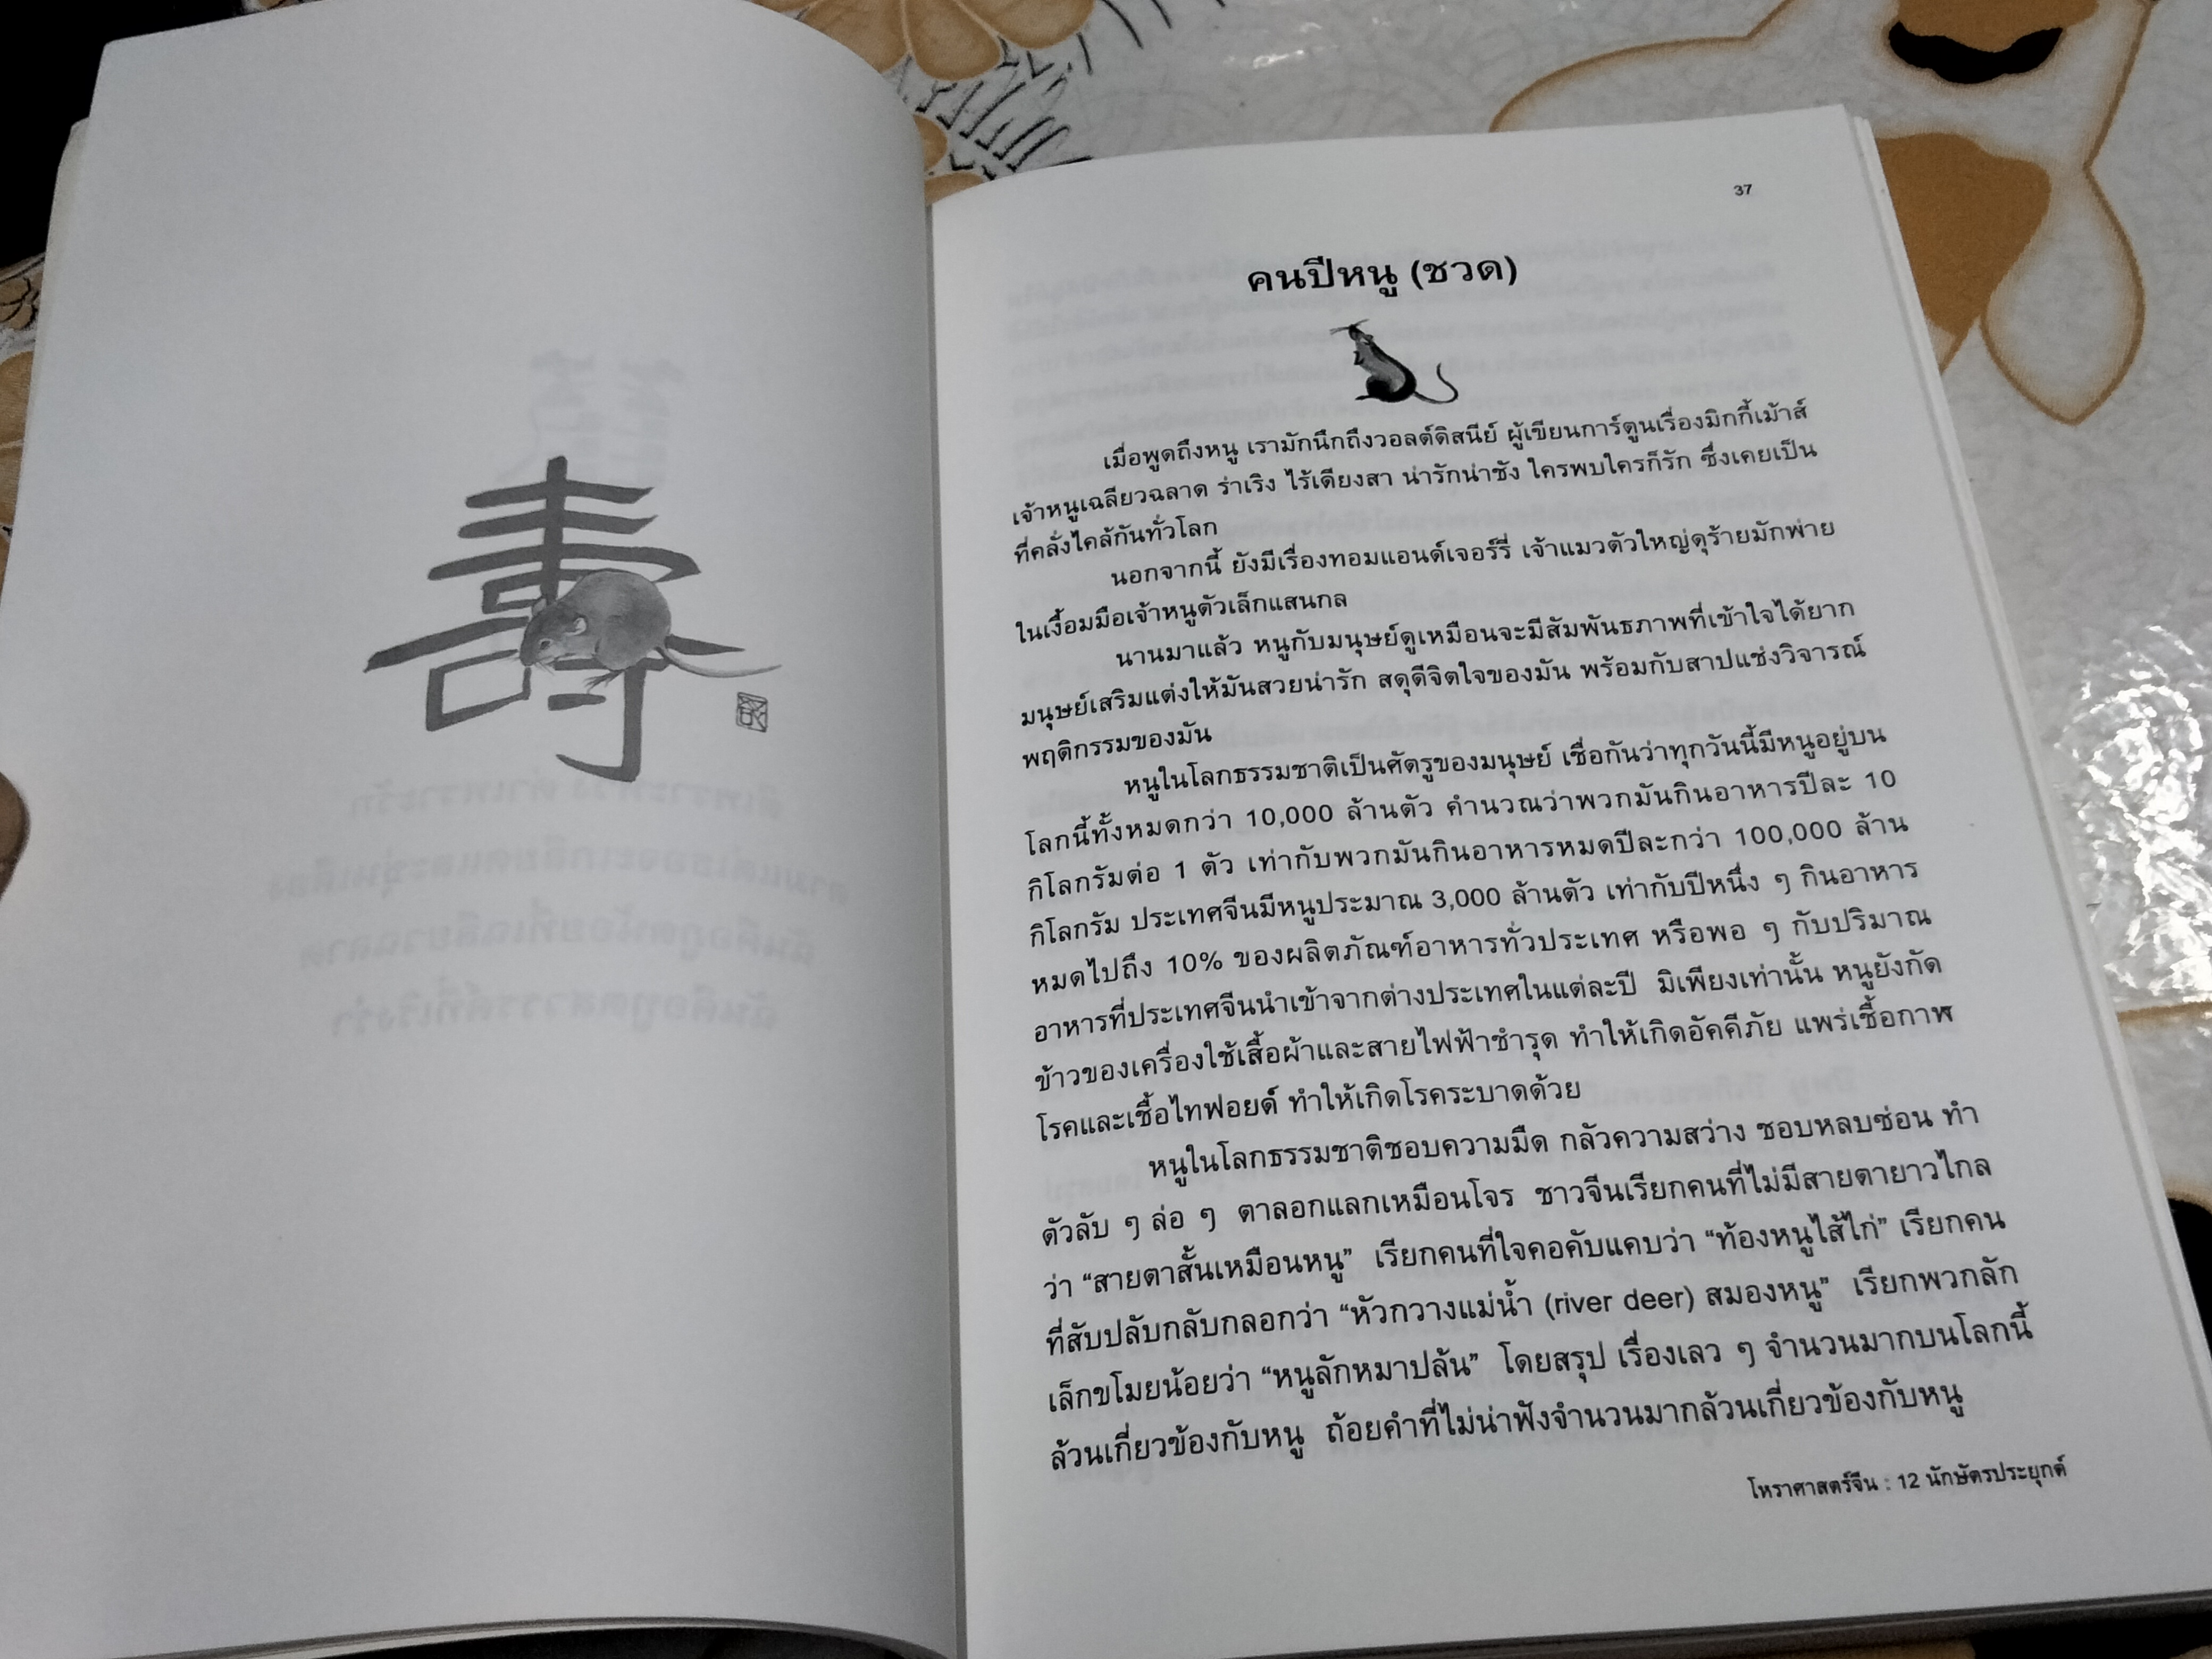 壽
37
คนปีหนู (ชวด)
เมื่อพูดถึงหนู เรามักนึกถึงวอลต์ดิสนีย์ ผู้เขียนการ์ตูนเรื่องมิกกี้เม้าส์
เจ้าหนูเฉลียวฉลาด ร่าเริง ไร้เดียงสา น่ารักน่าชัง ใครพบใครก็รัก ซึ่งเคยเป็น
ที่คลั่งไคล้กันทั่วโลก
นอกจากนี้ ยังมีเรื่องทอมแอนด์เจอร์รี่ เจ้าแมวตัวใหญ่ดุร้ายมักพ่าย
ในเงื้อมมือเจ้าหนูตัวเล็กแสนกล
นานมาแล้ว หนูกับมนุษย์ดูเหมือนจะมีสัมพันธภาพที่เข้าใจได้ยาก
มนุษย์เสริมแต่งให้มันสวยน่ารัก สดุดีจิตใจของมัน พร้อมกับสาปแช่งวิจารณ์
พฤติกรรมของมัน
หนูในโลกธรรมชาติเป็นศัตรูของมนุษย์ เชื่อกันว่าทุกวันนี้มีหนูอยู่บน
โลกนี้ทั้งหมดกว่า 10,000 ล้านตัว คำนวณว่าพวกมันกินอาหารปีละ 10
กิโลกรัมต่อ 1 ตัว เท่ากับพวกมันกินอาหารหมดปีละกว่า 100,000 ล้าน
กิโลกรัม ประเทศจีนมีหนูประมาณ 3,000 ล้านตัว เท่ากับปีหนึ่ง ๆ กินอาหาร
หมดไปถึง 10% ของผลิตภัณฑ์อาหารทั่วประเทศ หรือพอ ๆ กับปริมาณ
อาหารที่ประเทศจีนนำเข้าจากต่างประเทศในแต่ละปี มิเพียงเท่านั้น หนูยังกัด
ข้าวของเครื่องใช้เสื้อผ้าและสายไฟฟ้าชำรุด ทำให้เกิดอัคคีภัย แพร่เชื้อกาฬ
โรคและเชื้อไทฟอยด์ ทำให้เกิดโรคระบาดด้วย
หนูในโลกธรรมชาติชอบความมืด กลัวความสว่าง ชอบหลบซ่อน ทำ
ตัวลับ ๆ ล่อ ๆ ตาลอกแลกเหมือนโจร ชาวจีนเรียกคนที่ไม่มีสายตายาวไกล
ว่า “สายตาสั้นเหมือนหนู” เรียกคนที่ใจคอคับแคบว่า “ท้องหนูไส้ไก่” เรียกคน
ที่สับปลับกลับกลอกว่า “หัวกวางแม่น้ำ (river deer) สมองหนู” เรียกพวกลัก
เล็กขโมยน้อยว่า “หนูลักหมาปล้น” โดยสรุป เรื่องเลว ๆ จำนวนมากบนโลกนี้
ล้วนเกี่ยวข้องกับหนู ถ้อยคำที่ไม่น่าฟังจำนวนมากล้วนเกี่ยวข้องกับหนู
โหราศาสตร์จีน : 12 นักษัตรประยุกต์